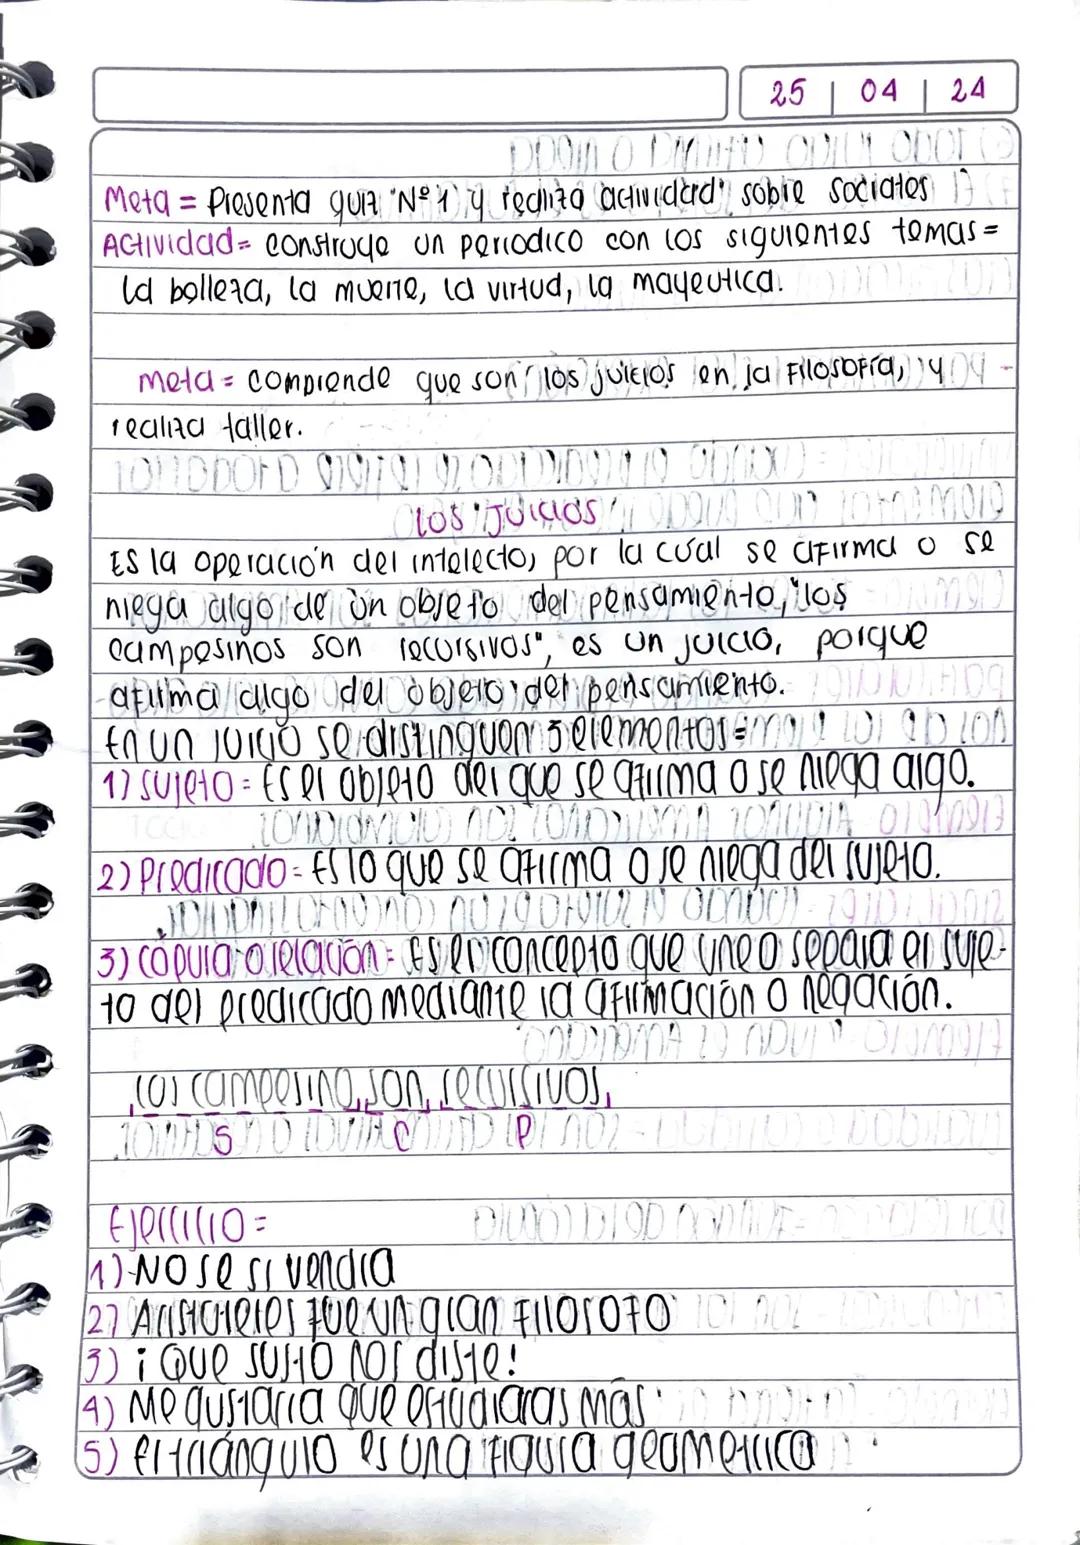 25 | 04 | 24
Meta = Presenta guia "Nº 1" y realiza actividad sobre socrates
Actividad = construye un periodico con los siguientes temas =
La belleza, la muerte, la virtud, la mayeutica.
meta = comprende que son los juicios en la Filosofía, y
realiza taller.
Los Juicios
Es la operación del intelecto, por la cual se afirma o se
niega algo de un objeto del pensamiento, "los
campesinos son recursivos", es un juicio, porque
afirma algo del objeto del pensamiento.
En un juicio se distinguen 3 elementos =
1) Sujeto = Es el objeto del que se afirma o se niega algo.
2) Predicado = Es lo que se afirma o se niega del sujeto.
3) Copula o relación = Es el concepto que une o separa el suje-
to del predicado mediante la afirmación o negación.
Los campesino, son, recursivos,
S C P
Ejercicio =
1) No se si vendra
2) Aristoteles fue un gran Filosofo
3) ¡ Que susto nos diste!
4) Me gustaria que estudiaras más
5) El triángulo es una figura geometrica